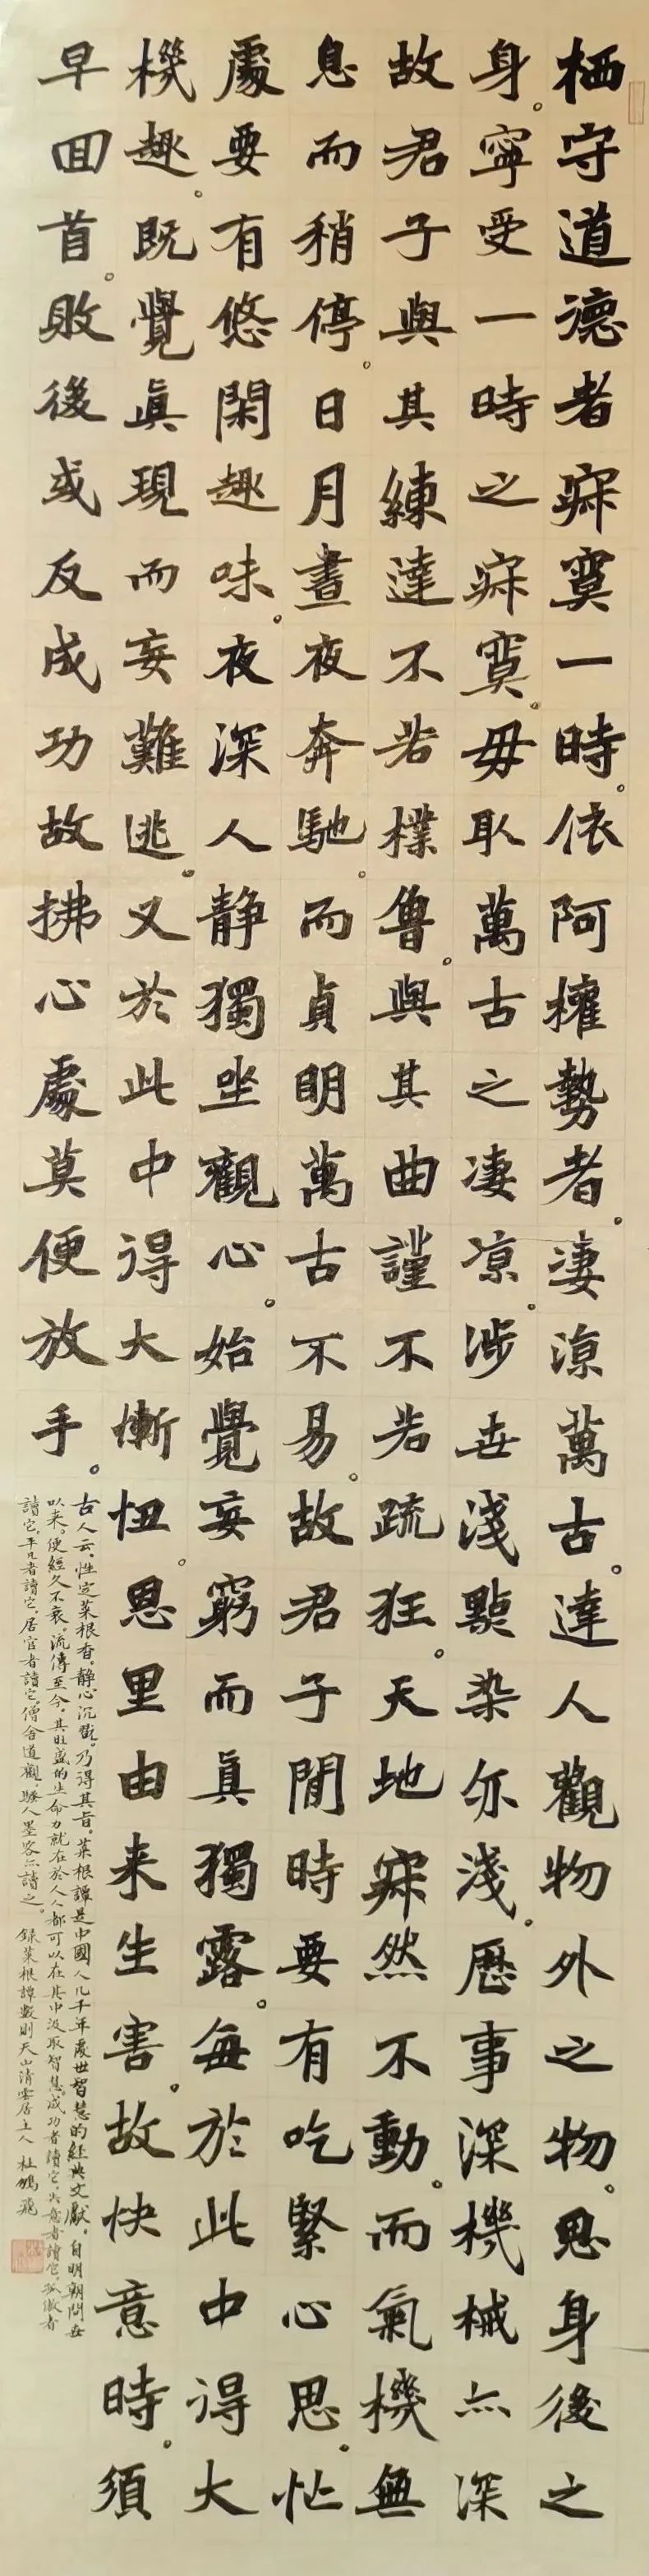 栖守道德者寂寞一時。依阿權勢者。淒涼萬古。達人觀物外之物。思身後之
身。寧受一時之寂寞。毋取萬古之凄凉。涉世淺點染亦淺。歷事深機械亦深
故君子與其練達不若樸魯。與其曲謹不若疏狂。天地寂然不動。而氣機無
息而稍停。日月晝夜奔馳。而貞明萬古不易。故君子閒時要有吃緊心思。忙
處要有悠閑趣味。夜深人静獨坐觀心。始覺妄窮而真獨露。每於此中得大
機趣。既覺真現而妄難逃。又於此中得大慚忸。恩里由来生害。故快意時。須
早回首。敗後或反成功故拂心處莫便放手。
古人云，性定菜根香。静心沉玩。乃得其旨。菜根譚是中國人几千年處世智慧的經典文獻，自明朝問世
以来。便經久不衰。流傳至今。其旺盛的生命力就在於人人都可以在其中汲取智慧。成功者讀它，失意者讀它，孤傲者
讀它，平凡者讀它，居官者讀它，僧舍道觀，騷人墨客亦讀之。 録菜根譚數則天山清雲居主人 杜鵬飛